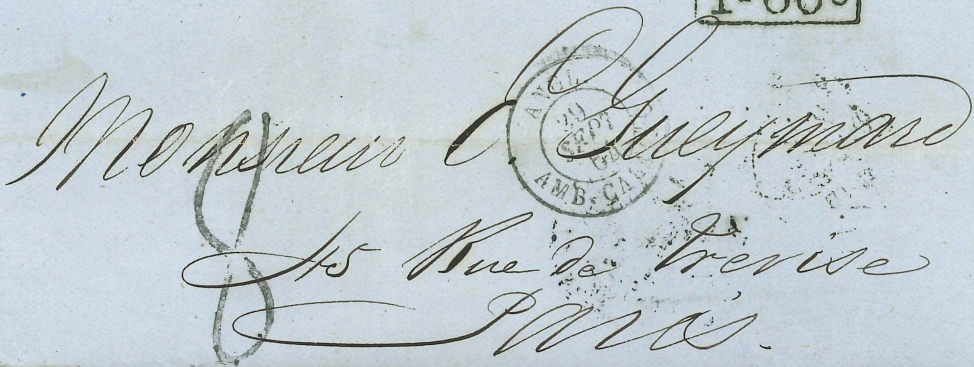 1-60c
Monsieur C. Gueymard
ANGL.
29
SEPT
AMB. CAL
8
45 Rue de Trevise
Paris.